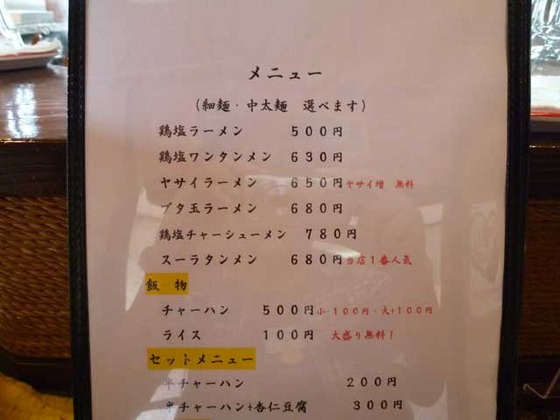 メニュー
(細麺・中太麺 選べます)
鶏塩ラーメン 500円
鶏塩ワンタンメン 630円
ヤサイラーメン 650円 ヤサイ増 無料
ブタ玉ラーメン 680円
鶏塩チャーシューメン 780円
スーラタンメン 680円 当店1番人気
飯 物
チャーハン 500円 小-100円・大+100円
ライス 100円 大盛り無料!
セットメニュー
半チャーハン 200円
半チャーハン+杏仁豆腐 300円